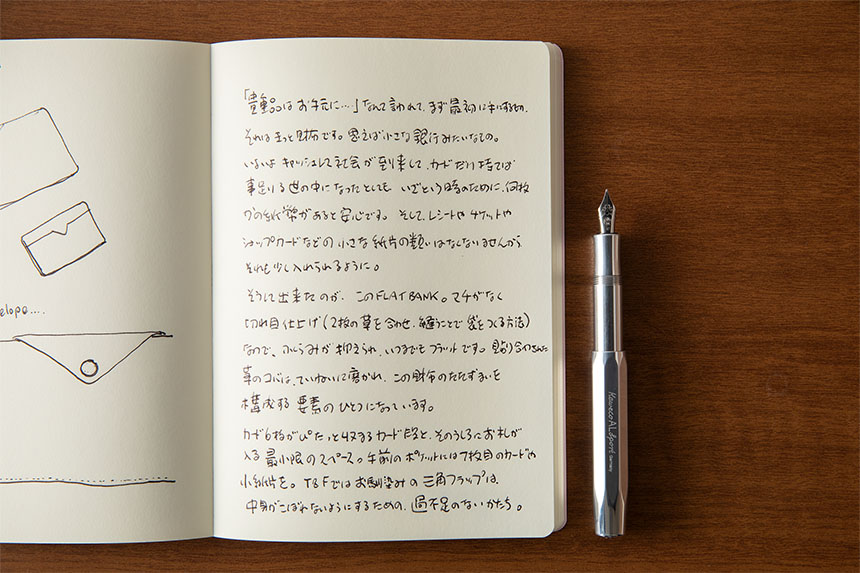 elope....
「貴重品はお手元に…」なんて言われて、まず最初に手にするもの、
それはきっと財布です。思えば小さな銀行みたいなもの。
いよいよキャッシュレス社会が到来して、カードだけ持てば
事足りる世の中になったとしても、いざという時のために、何枚
かの紙幣があると安心です。そして、レシートやチケットや
ショップカードなどの小さな紙片の類いはなくなりませんから
それも少し入れられるように。
そうして出来たのが、このFLAT BANK。マチがなく
切れ目仕上げ(2枚の革を合わせ、縫うことで袋をつくる方法)
なので、ふくらみが抑えられ、いつまでもフラットです。貼り合わされた
革のコバは、ていねいに磨かれ、この財布のたたずまいを
構成する要素のひとつになっています。
カード6枚がぴたっと収まるカード段と、そのうしろにお札が
入る最小限のスペース。手前のポケットには7枚目のカードや
小紙片を。T&Fではお馴染みの三角フラップは、
中身がこぼれないようにするための、過不足のないかたち。
Kaweco AL Sport Germany